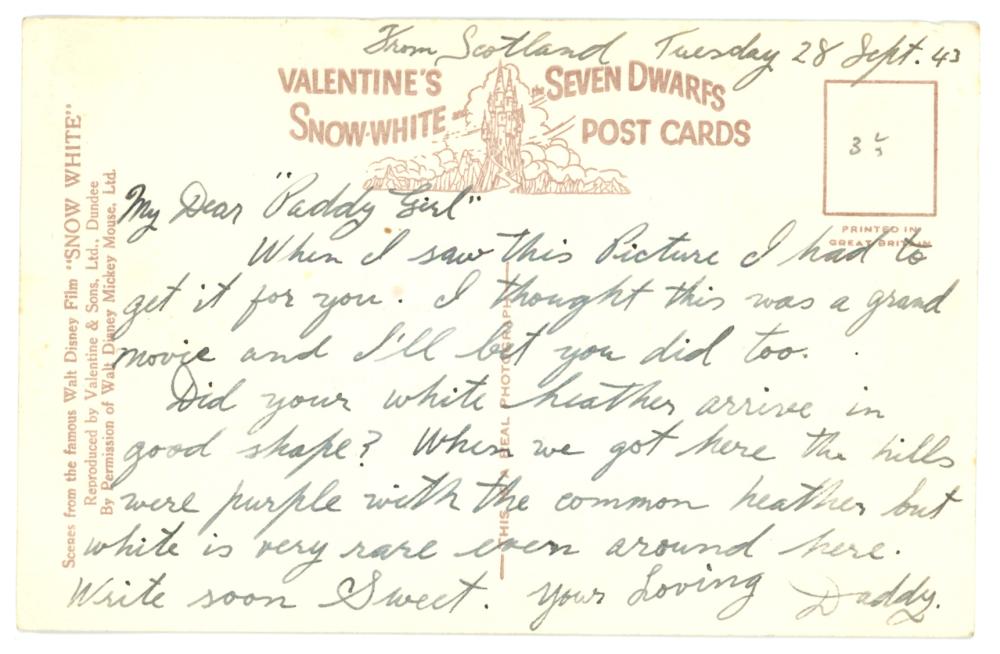 From Scotland Tuesday 28 Sept. 43
VALENTINE'S
SNOW-WHITE and
the SEVEN DWARFS
POST CARDS
PRINTED IN
GREAT BRITAIN
Scenes from the famous Walt Disney Film "SNOW WHITE"
Reproduced by Valentine & Sons, Ltd., Dundee
By Permission of Walt Disney Mickey Mouse, Ltd.
My Dear "Paddy Girl"
When I saw this Picture I had to
get it for you. I thought this was a grand
movie and I'll bet you did too.
Did your white heather arrive in
good shape? When we got here the hills
were purple with the common heather but
white is very rare even around here.
Write soon Sweet. Your Loving Daddy.
THIS IS A REAL PHOTOGRAPH